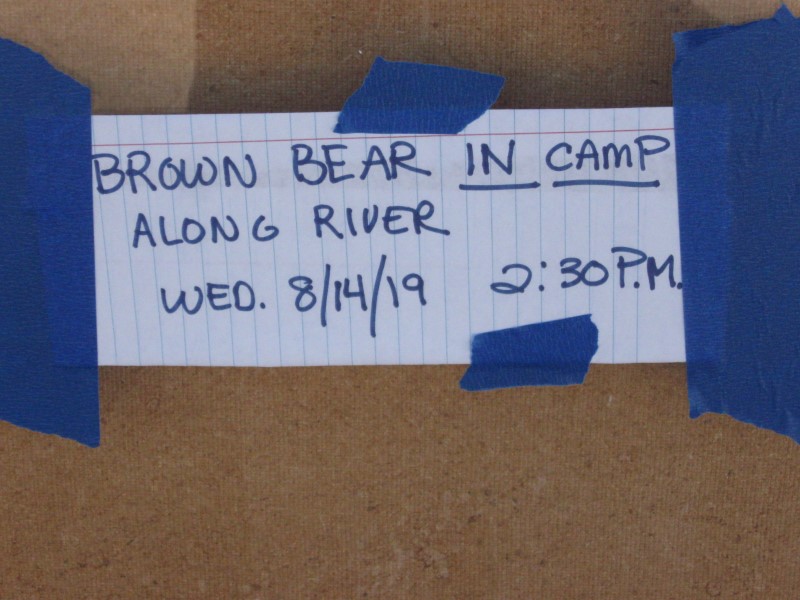 BROWN BEAR IN CAMP
ALONG RIVER
WED. 8/14/19 2:30 P.M.